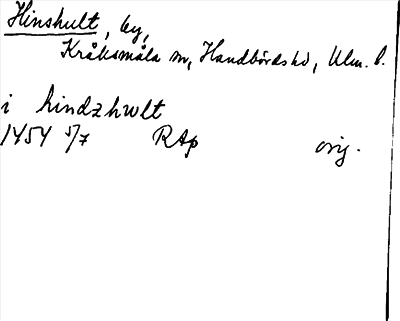 Hinshult, by,
Kråksmåla sn, Handbörds hd, Klm. l.
i hindzhwlt
1454 5/7 RAp orig.